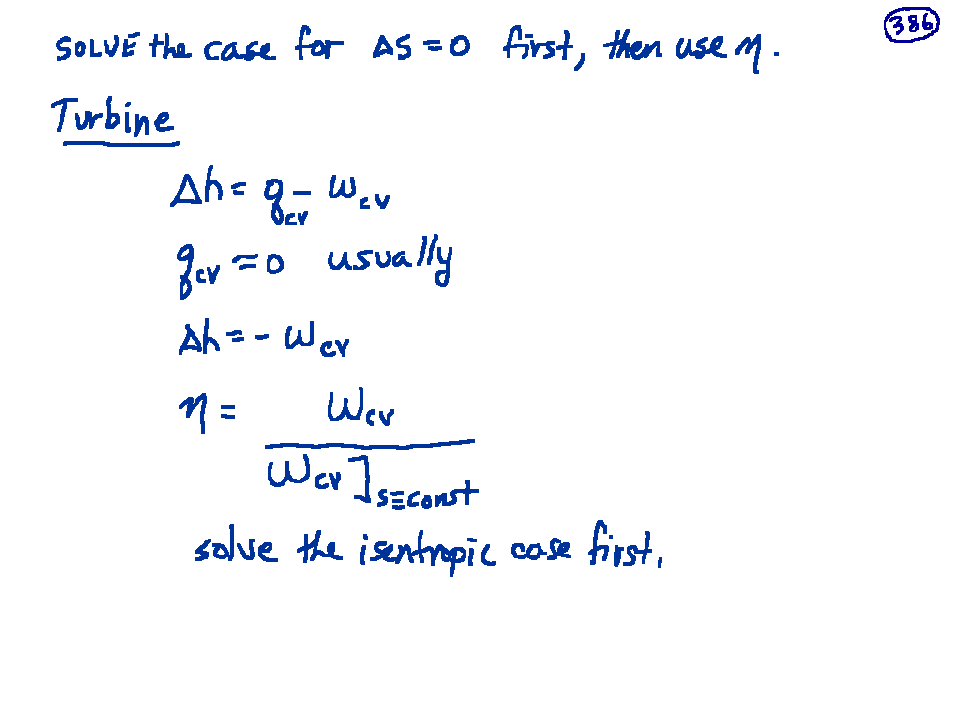 SOLVE the case for ΔS = 0 first, then use η.
386
Turbine
Δh = q_cv - w_cv
q_cv ≈ 0 usually
Δh = - w_cv
η = w_cv / w_cv]_s≡const
solve the isentropic case first.